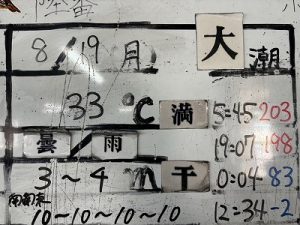 8/19月 大潮
33℃ 満 5=45 203
曇/雨 19=07 198
3〜4m 干 0:04 83
南南東 12=34 -2
10〜10〜10〜10